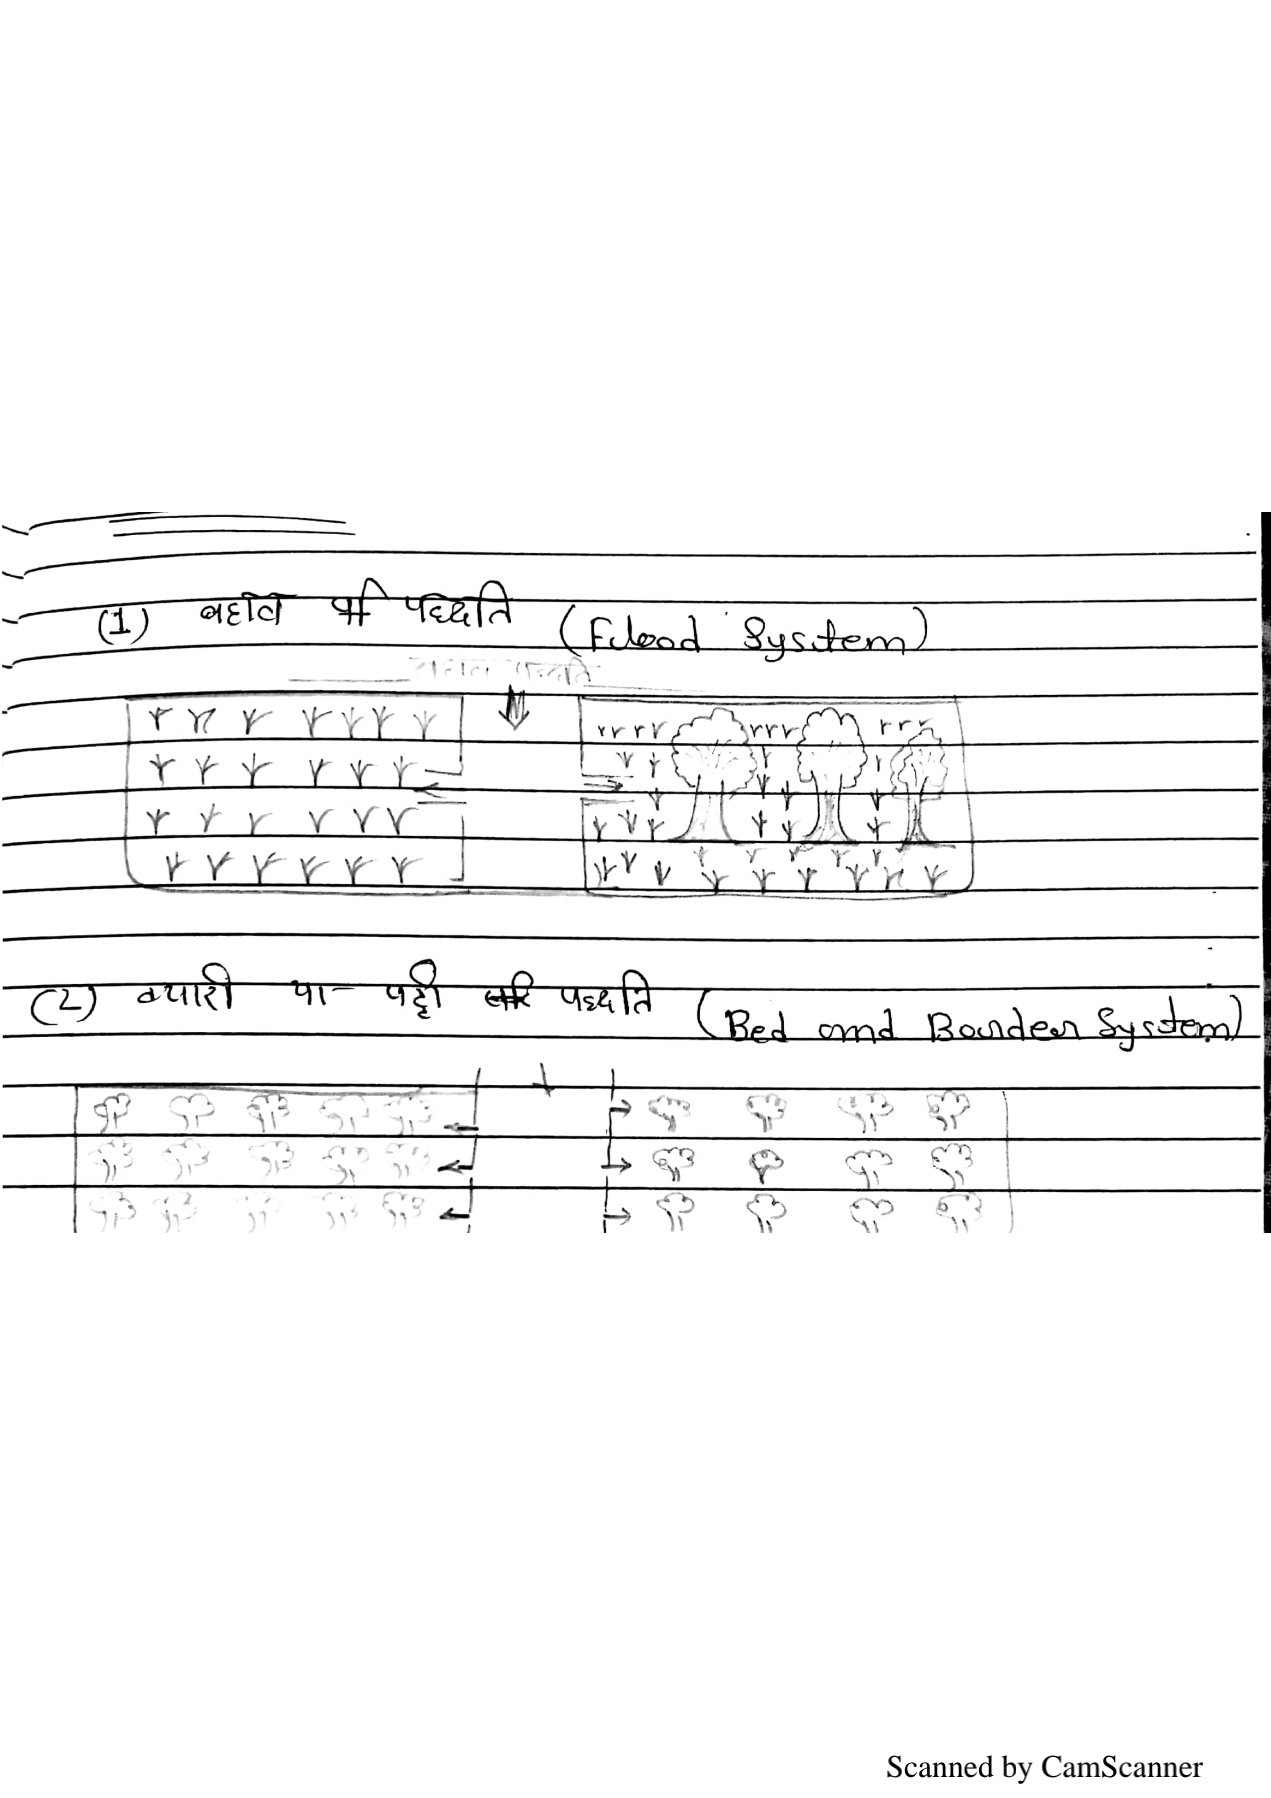 (1) बहाव की पद्धति (Flood System)
बहाव पद्धति
(2) क्यारी या पट्टी पद्धति (Bed and Border System)
Scanned by CamScanner